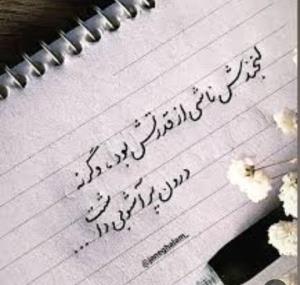 لبخندش ناشی از قدرتش بود، وگرنه
درون پر آشوبی داشت...
@janeghalam_